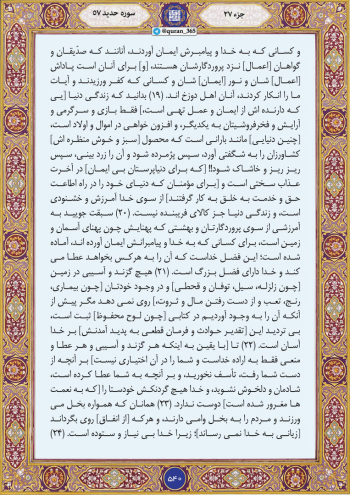 جزء ۲۷
@quran_365
سوره حدید ۵۷
و کسانی که به خدا و پیامبرش ایمان آوردند، آنانند که صدّیقان و
گواهان [اعمال] نزد پروردگارشان هستند، [و] برای آنان است پاداش
[اعمال] شان و نور [ایمان] شان و کسانی که کفر ورزیدند و آیات
ما را انکار کردند، آنان اهل دوزخ اند. (۱۹) بدانید که زندگی دنیا [یی
که دارنده اش از ایمان و عمل تهی است،] فقط بازی و سرگرمی و
آرایش و فخرفروشیتان به یکدیگر، و افزون خواهی در اموال و اولاد است،
[چنین دنیایی] مانند بارانی است که محصول [سبز و خوش منظره اش]
کشاورزان را به شگفتی آورد، سپس پژمرده شود و آن را زرد بینی، سپس
ریز ریز و خاشاک شود!! [که برای دنیاپرستان بی ایمان] در آخرت
عذاب سختی است و [برای مؤمنان که دنیای خود را در راه اطاعت
حق و خدمت به خلق به کار گرفتند] از سوی خدا آمرزش و خشنودی
است، و زندگی دنیا جز کالای فریبنده نیست. (۲۰) سبقت جویید به
آمرزشی از سوی پروردگارتان و بهشتی که پهنایش چون پهنای آسمان و
زمین است، برای کسانی که به خدا و پیامبرانش ایمان آورده اند، آماده
شده است؛ این فضل خداست که آن را به هرکس بخواهد عطا می
کند و خدا دارای فضل بزرگ است. (۲۱) هیچ گزند و آسیبی در زمین
[چون زلزله، سیل، توفان و قحطی] و در وجود خودتان [چون بیماری،
رنج، تعب و از دست رفتن مال و ثروت،] روی نمی دهد مگر پیش از
آنکه آن را به وجود آوردیم در کتابی [چون لوح محفوظ] ثبت است،
بی تردید این [تقدیر حوادث و فرمان قطعی به پدید آمدنش] بر خدا
آسان است. (۲۲) تا [با یقین به اینکه هر گزند و آسیبی و هر عطا و
منعی فقط به اراده خداست و شما را در آن اختیاری نیست] بر آنچه از
دست شما رفت، تأسف نخورید، و بر آنچه به شما عطا کرده است،
شادمان و دلخوش نشوید، و خدا هیچ گردنکش خودستا را [که به نعمت
ها مغرور شده است] دوست ندارد. (۲۳) همانان که همواره بخل می
ورزند و مردم را به بخل وامی دارند، و هرکه [از انفاق] روی بگرداند
[زیانی به خدا نمی رساند]؛ زیرا خدا بی نیاز و ستوده است. (۲۴)
۵۴۰